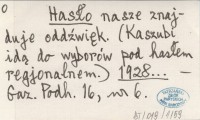 o Hasło nasze znaj-
duje oddźwięk. (Kaszubi
idą do wyborów pod hasłem
regjonalnem.) 1928... —
Gaz. Podh. 16, nr 6.